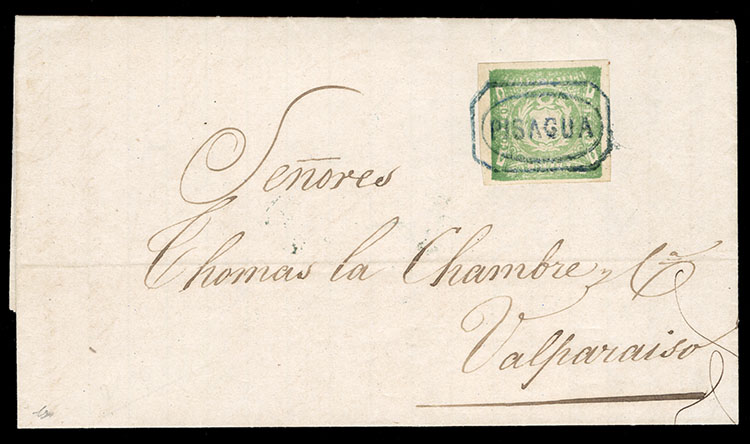 PISAGUA
Señores
Thomas la Chambre y Cª
Valparaiso